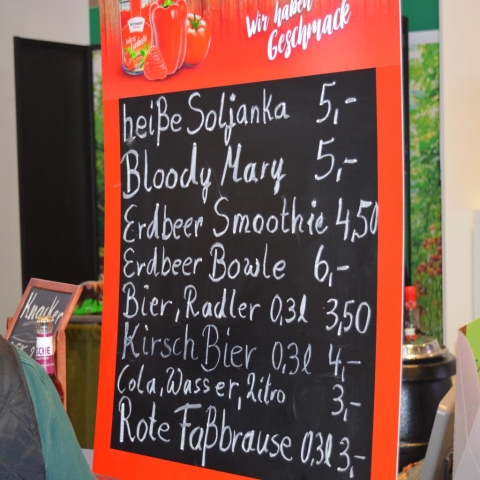 Wir haben
Geschmack
heiße Soljanka 5,-
Bloody Mary 5,-
Erdbeer Smoothie 4,50
Erdbeer Bowle 6,-
Bier, Radler 0,3l 3,50
Kirsch Bier 0,3l 4,-
Cola, Wasser, Zitro 3,-
Rote Faßbrause 0,3l 3,-
Knacker